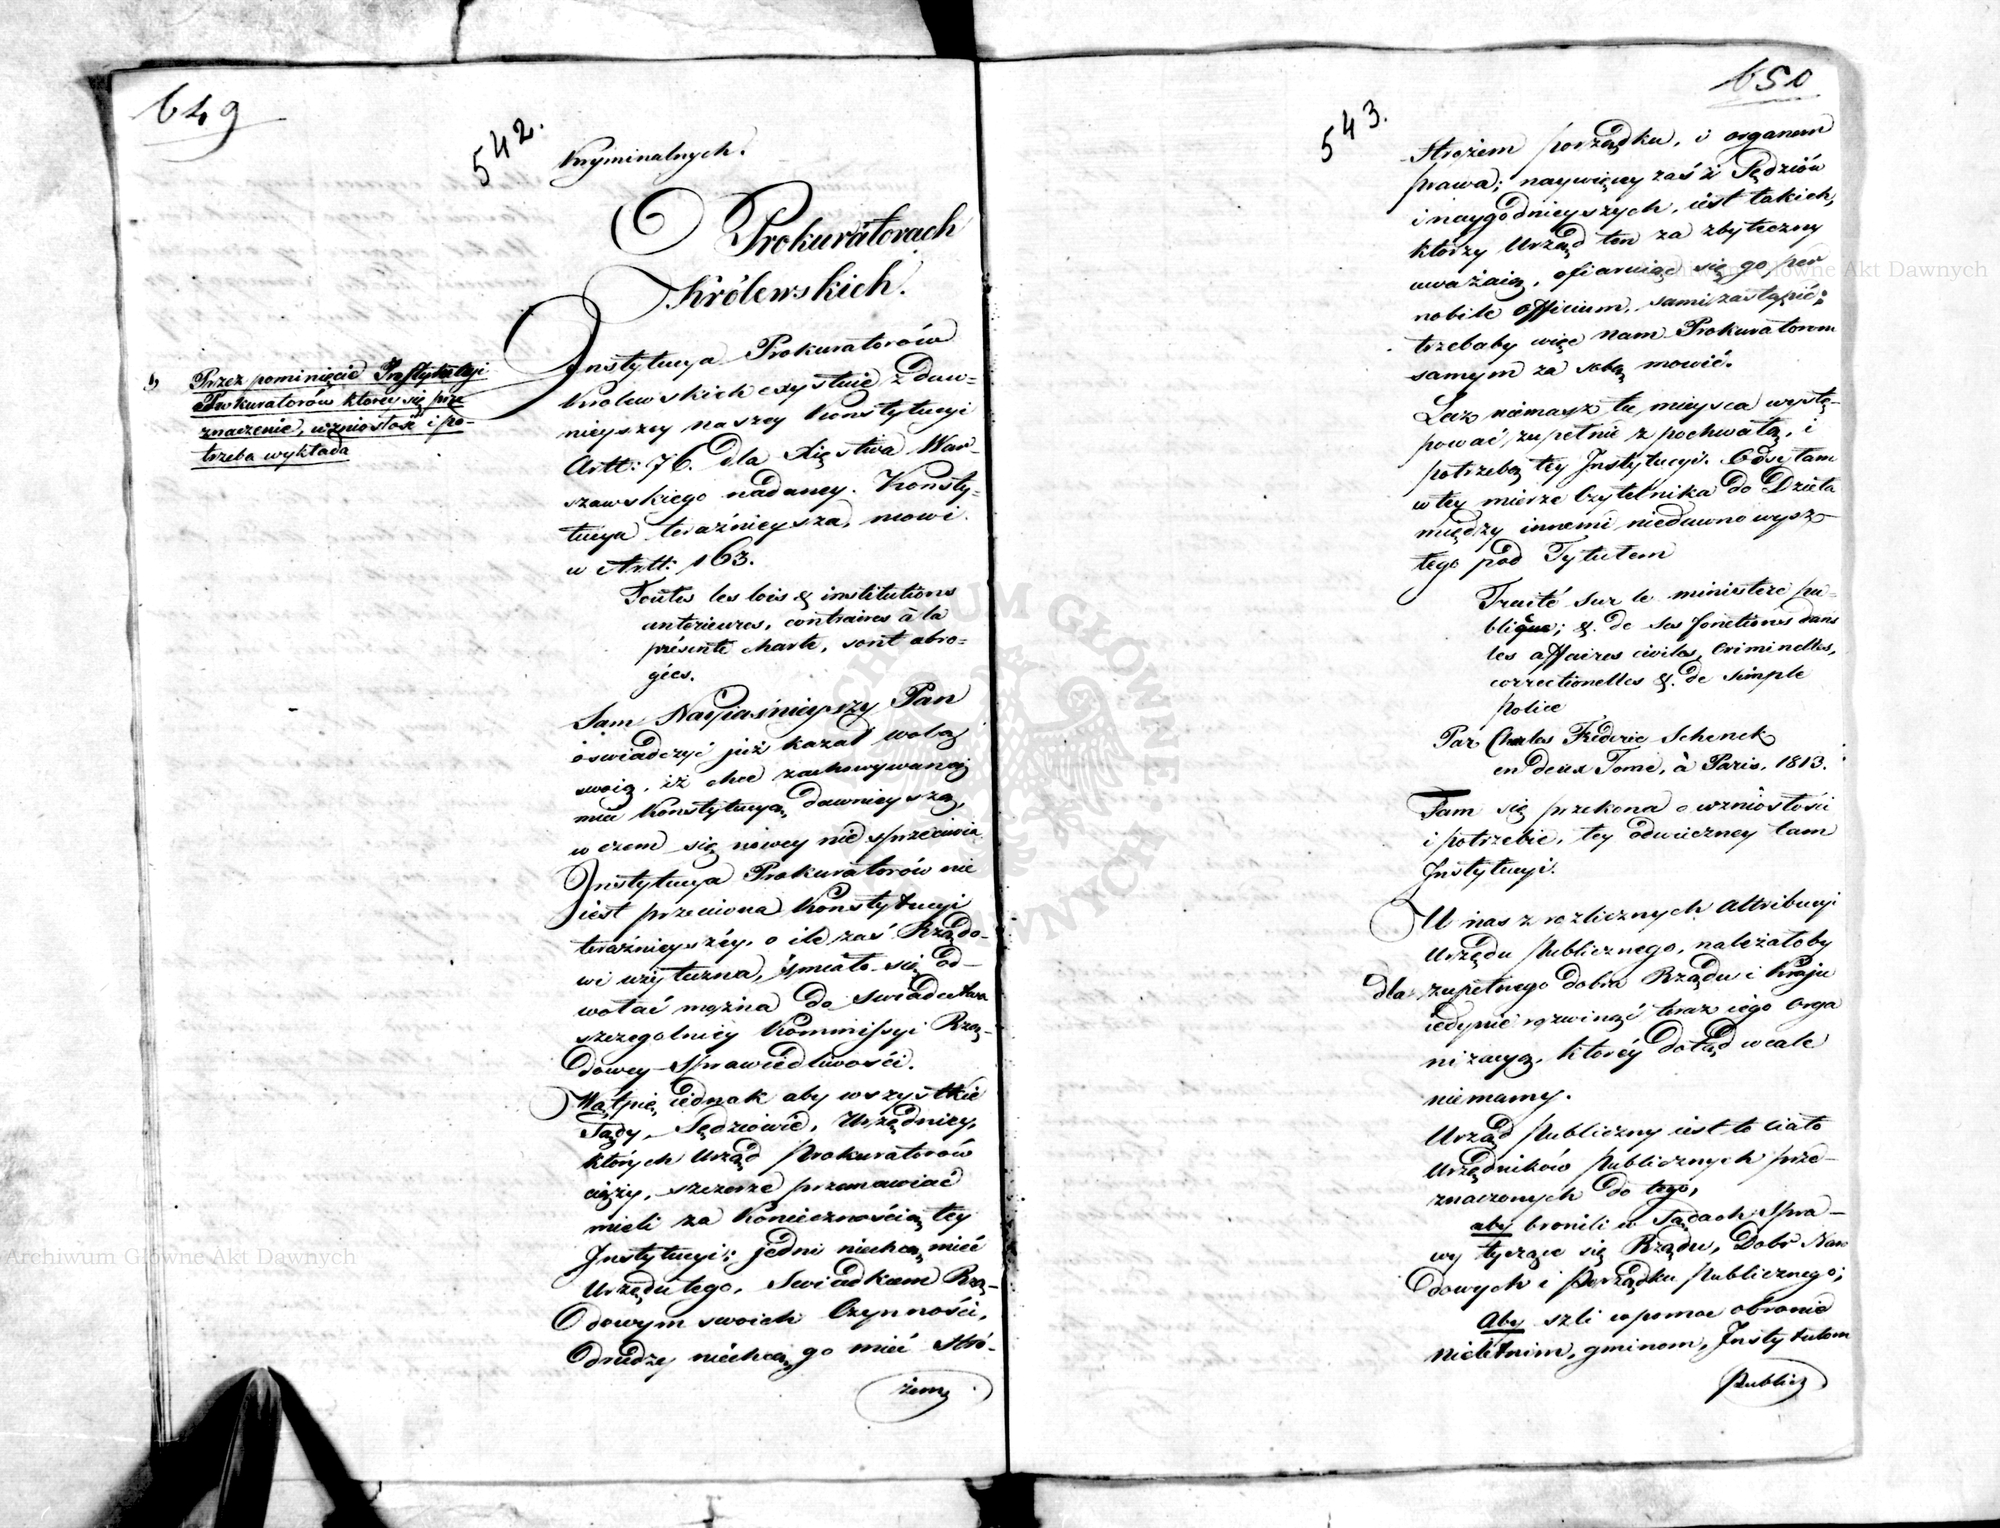 649
542.
Kryminalnych.
O Prokuratorach
Królewskich.
b, Przez pominięcie Instytucyi
Prokuratorów ktorey się prze
znaczenie, wzniosłość i po-
trzeba wykłada
Instytucya Prokuratorów
Krolewskich exystuie z daw-
nieyszey naszey Konstytucyi
Artt: 76. dla Xięstwa War-
szawskiego nadaney. Konsty-
tucya teraźnieysza, mowi
w Artt: 163.
Toutes les lois & institutions
anterieures, contraires à la
présente charte, sont abro-
gées.
Sam Nayiaśnieyszy Pan
oswiadczyć już kazał wolą
swoią, iż chce zachowywaną
mieć Konstytucyą dawnieyszą,
w czem się nowey nie sprzeciwia
Instytucya Prokuratorów nie
iest przeciwna Konstytucyi
teraźnieyszéy, o ile zaś Rządo-
wi użyteczna, śmiało się od-
wołać można do swiadectwa
szczegolniey Kommissyi Rzą-
dowey Sprawiedliwości.
Wątpię, iednak aby wszystkie
Sądy, Sędziowie, Urzędnicy,
których Urząd Prokuratorów
ciąży, szczerze przemawiać
mieli za koniecznością tey
Instytucyi; jedni niechcą mieć
Urzędu tego, Swiadkiem Rzą-
dowym swoich Czynności,
Drudzy niechcą go mieć Stró-
żem
650
543.
Stróżem porządku, i organem
prawa; naywięcey zaś z Sędziów
i naygodnieyszych, iest takich,
ktorzy Urząd ten za zbyteczny
uważaią, ofiaruiąc się go per
nobile officium, sami zastąpić;
trzebaby więc nam Prokuratorom
samym za sobą mowić.
Lecz niémasz tu mieysca wystę-
pować zupełnie z pochwałą, i
potrzebą tey Instytucyi. Odsyłam
w tey mierze Czytelnika do Dzieła
między innemi niedawno wysz-
łego pod Tytułem
Traité sur le ministere pu-
blique; &. de ses fonctions dans
les affaires civiles, Criminelles,
correctionelles &. de simple
police
Par Charles Fréderic Schenck
en deux Tome, à Paris, 1813.
Tam się przekona o wzniosłości
i potrzebie, tey odwieczney tam
Instytucyi.
U nas z rozlicznych Attribucyi
Urzędu Publicznego, należałoby
dla zupełnego dobra Rządu i Kraju
iedynie rozwinąć teraz iego Orga
nizacyą, ktoréy dotąd wcale
niemamy.
Urząd Publiczny iest to ciało
Urzędników Publicznych prze-
znaczonych do tego,
aby bronili w Sądach Spra-
wy tyczące się Rządu, Dobr Naro
dowych i Porządku Publicznego;
Aby szli w pomoc obronie
Nieletnim, gminom, Instytutom
Public
Archiwum Główne Akt Dawnych
Archiwum Główne Akt Dawnych
ARCHIWUM GŁÓWNE AKT DAWNYCH